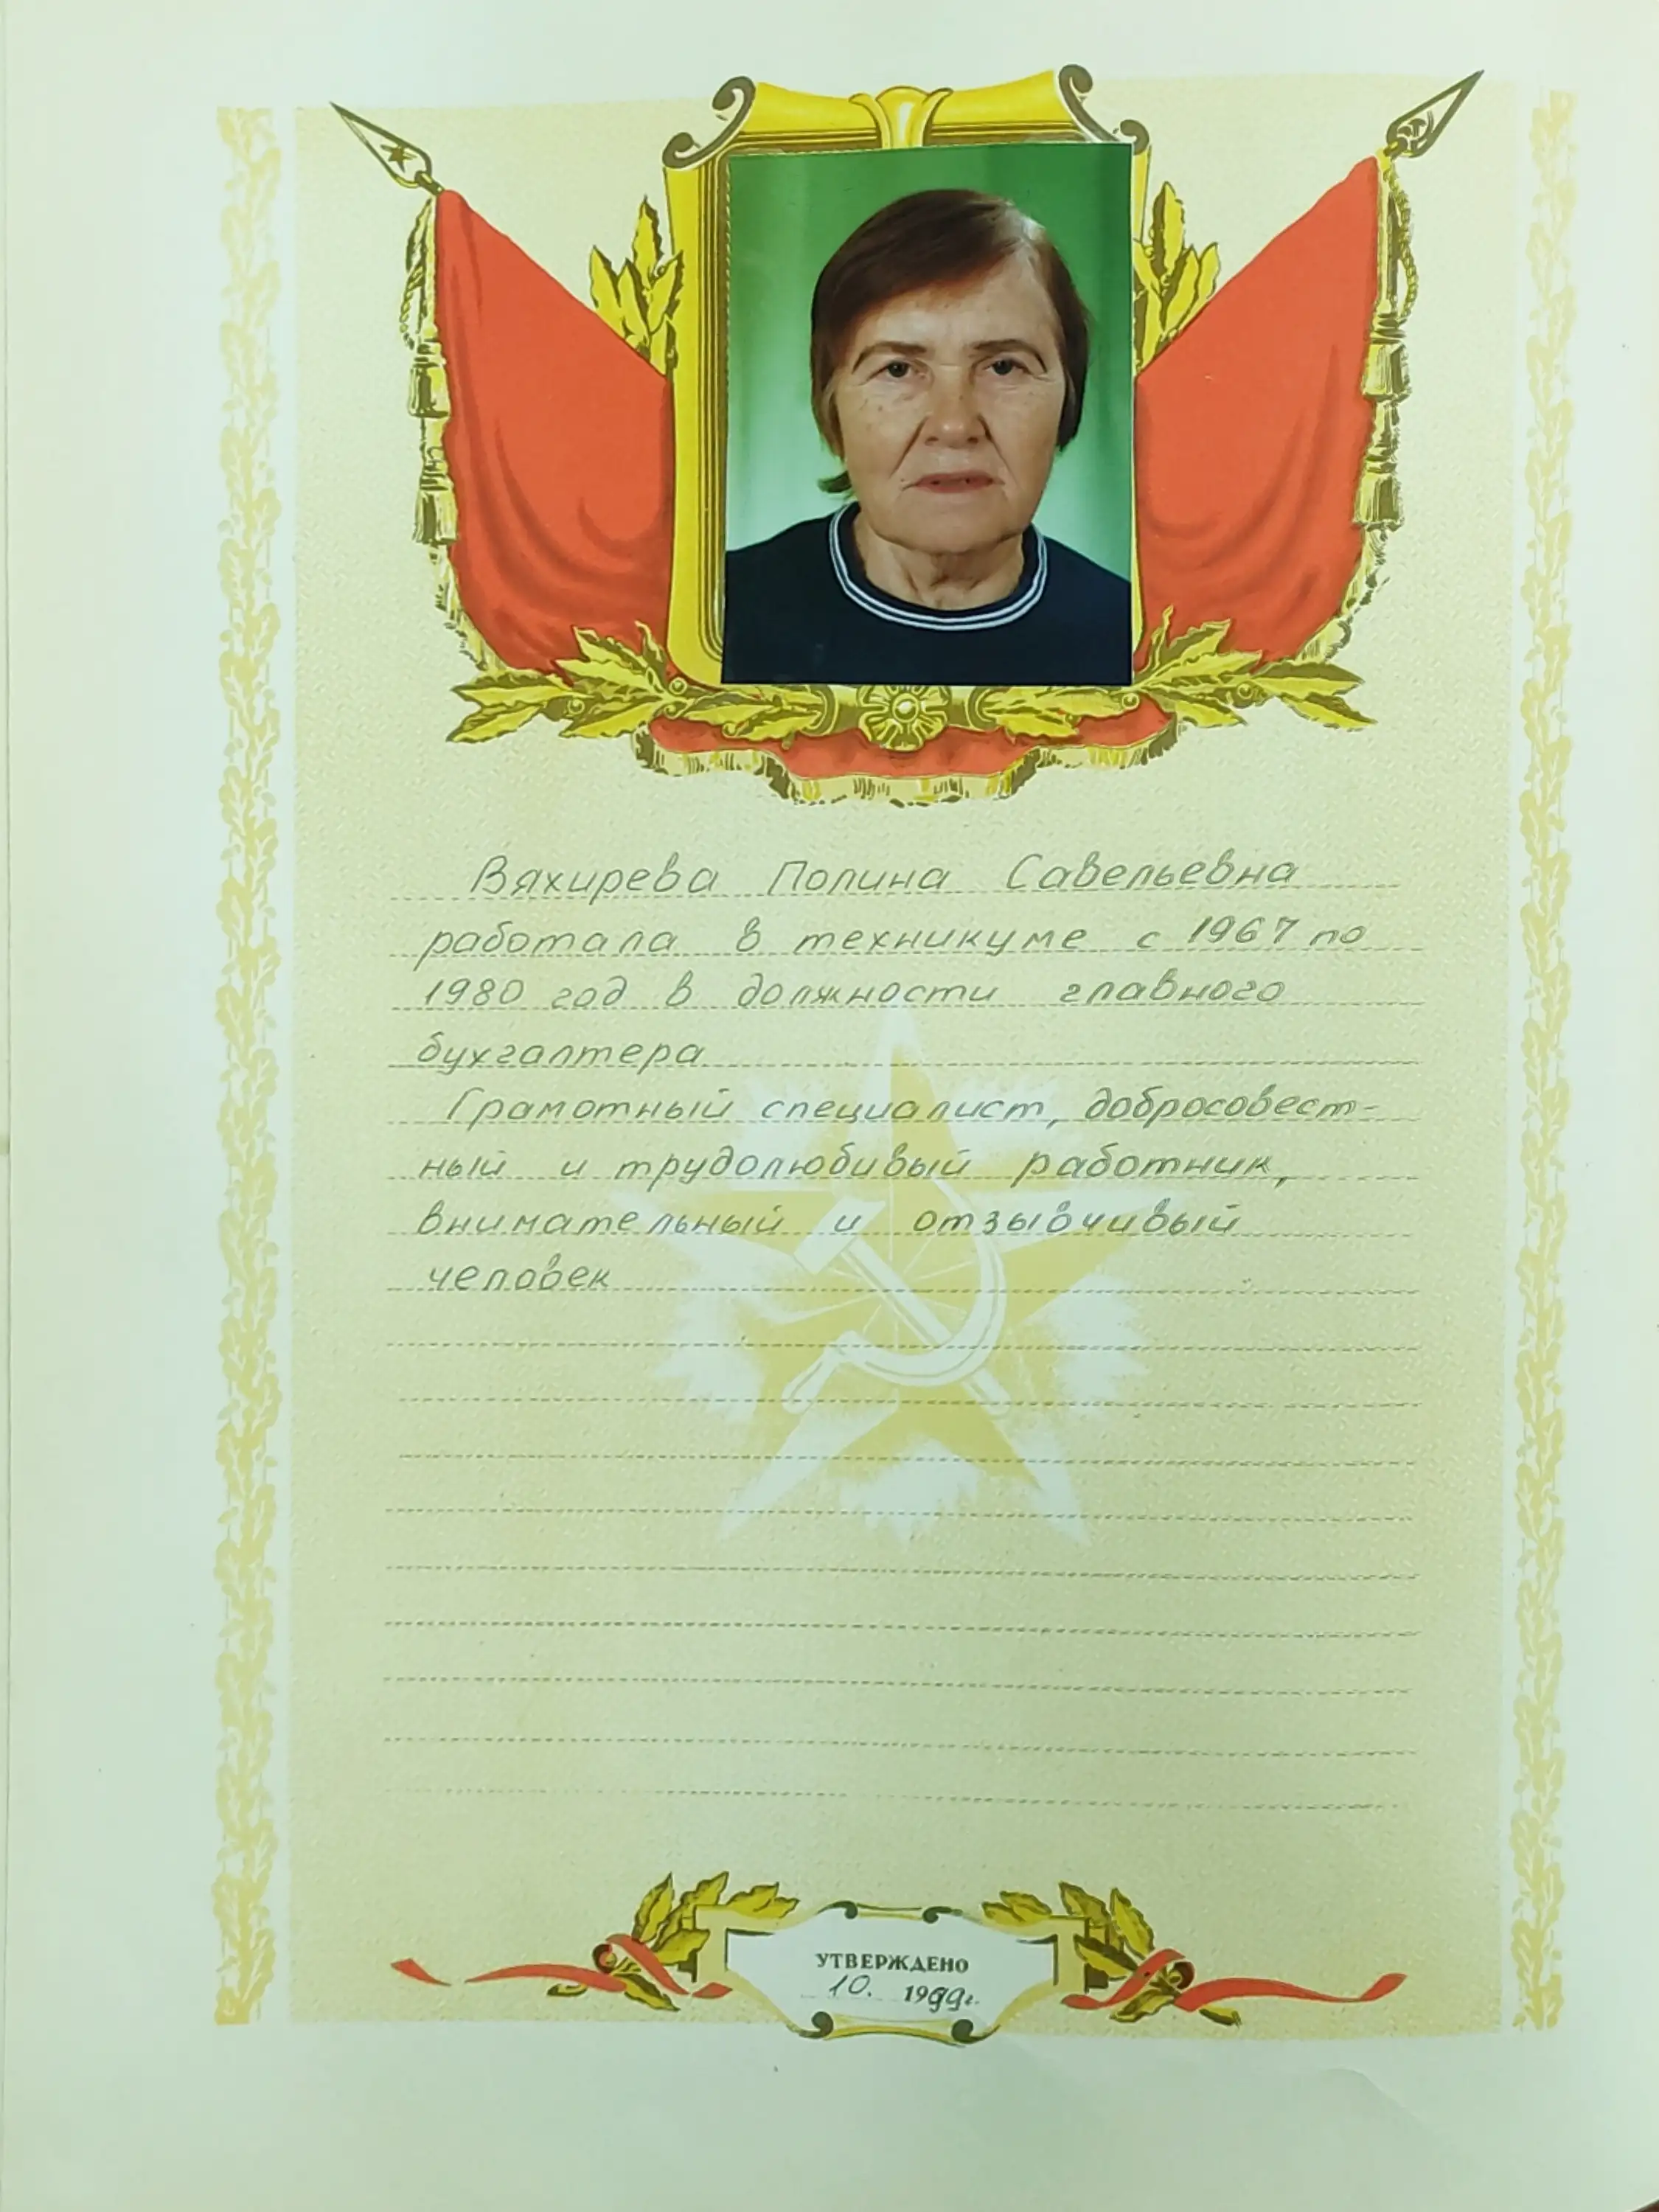 Вяхирева Полина Савельевна
работала в техникуме с 1967 по
1980 год в должности главного
бухгалтера
Грамотный специалист, добросовест-
ный и трудолюбивый работник,
внимательный и отзывчивый
человек
УТВЕРЖДЕНО
10. 1999г.